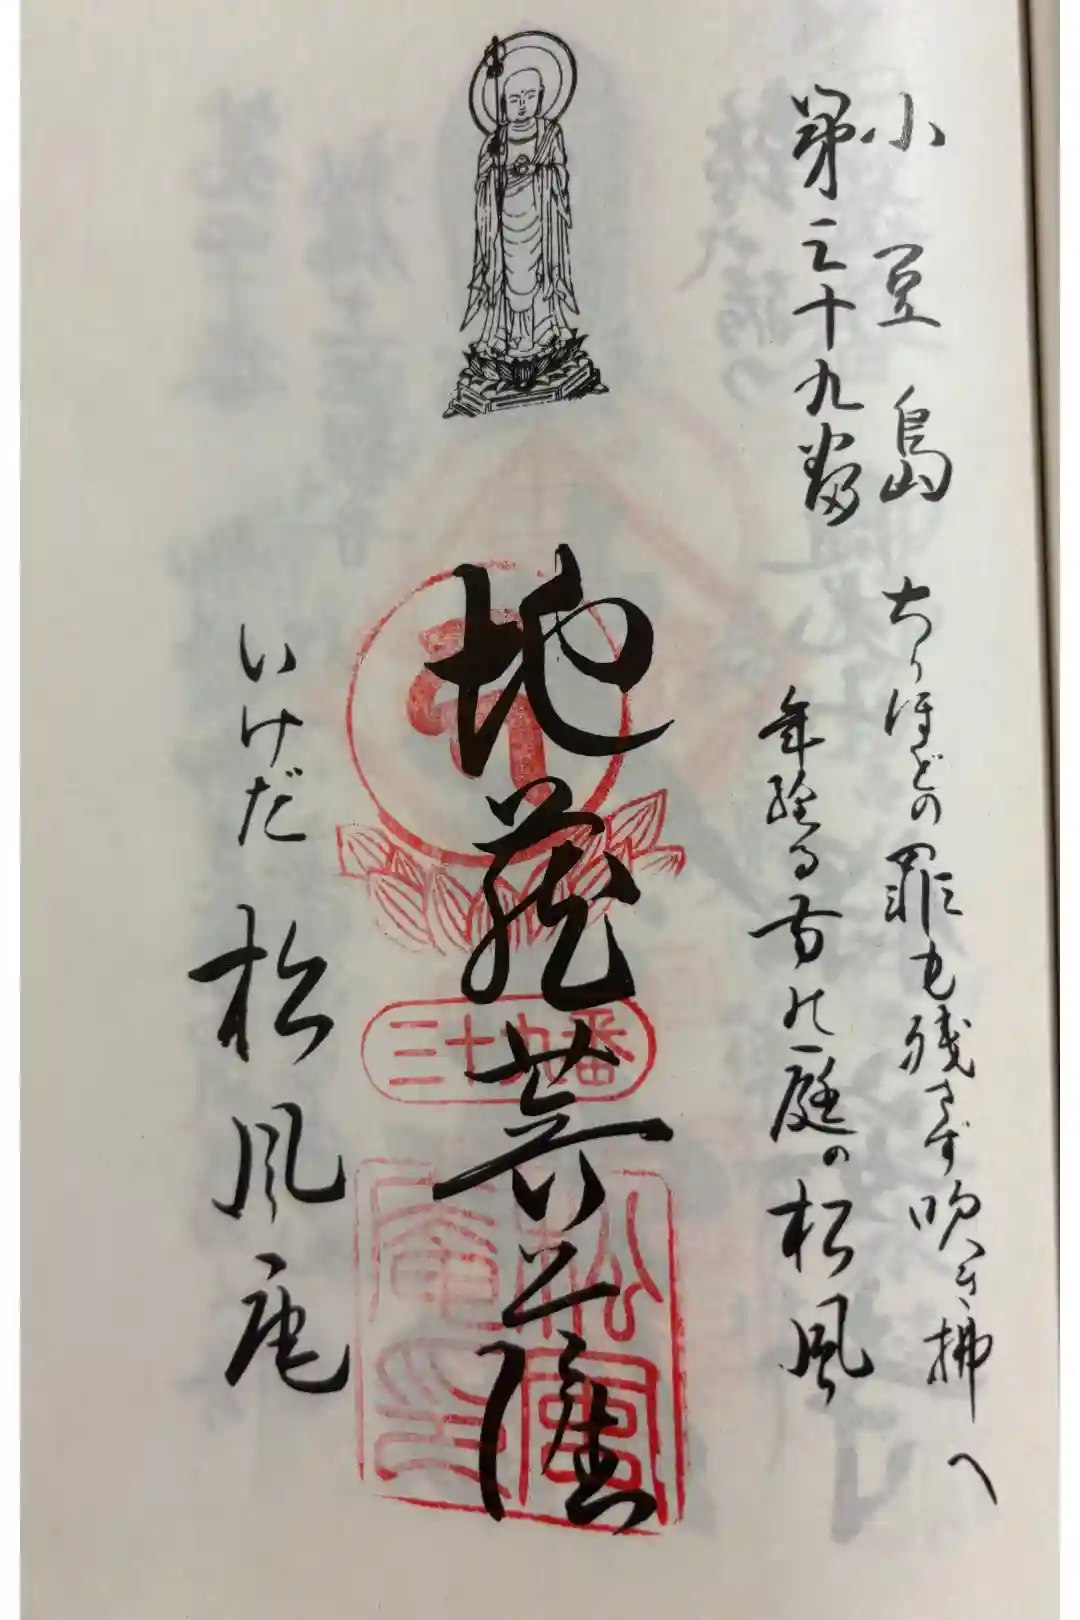 小豆島 ちりほどの罪も残さず吹き拂へ
第三十九番 年経るの庭の松風
地蔵菩薩
三十九番
松風庵印
いけだ 松風庵